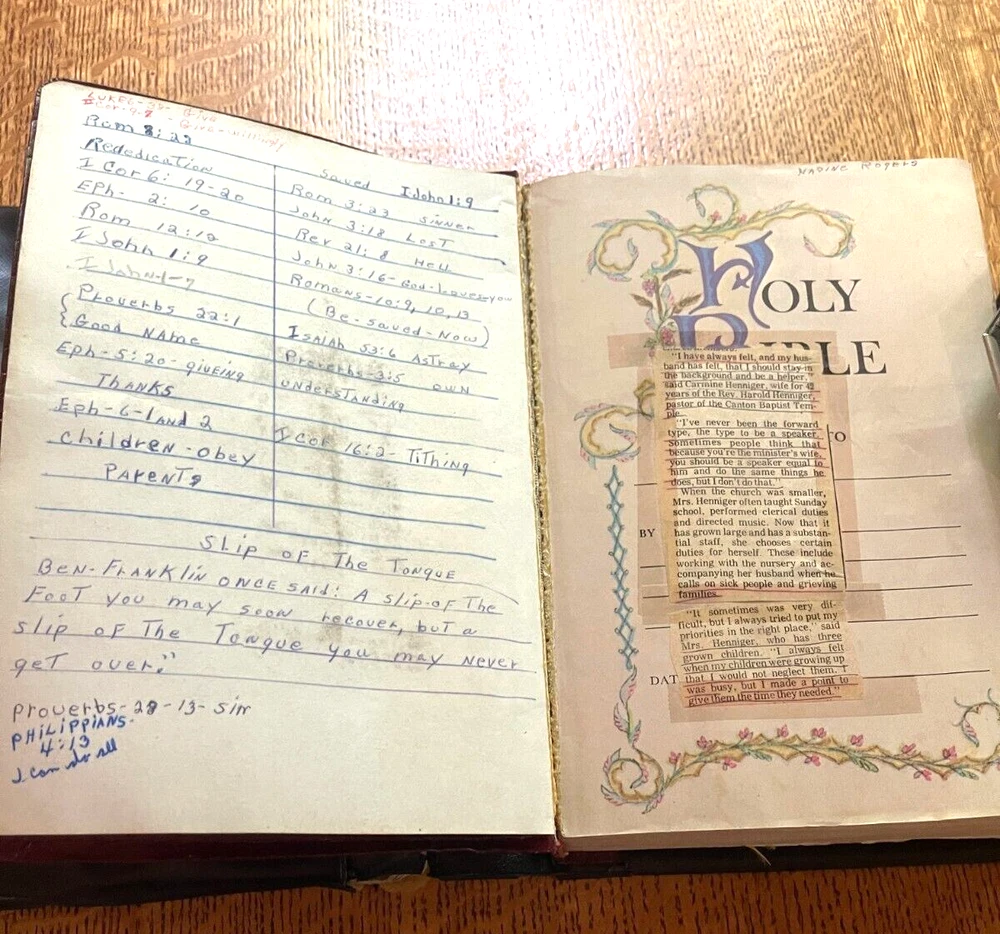 LUKE 6-38 - Give
II Cor-9-7 - Give - willingly
Rom 8:28
Rededication
I Cor 6: 19-20
Eph- 2: 10
Rom 12:12
I John 1:9
I John-1-7
Proverbs 22:1
Good Name
Eph-5:20-giveing
Thanks
Eph-6-1 and 2
children-obey
Parents
Saved I John 1:9
Rom 3:23 sinner
John 3:18 Lost
Rev 21:8 Hell
John 3:16-God-Loves-you
Romans-10:9,10,13
(Be-saved-Now)
Isaiah 53:6 Astray
Proverbs-3:5 own
understanding
I Cor 16:2-Tithing
Slip of The Tongue
Ben-Franklin once said: A slip-of The
Foot you may soon recover, but a
slip of The Tongue you may Never
get over."
Proverbs-28-13-Sin
PHILIPPIANS-
4:13
I can do all
NADINE Rogers
HOLY
BIBLE
"I have always felt, and my hus-
band has felt, that I should stay in
the background and be a helper,"
said Carmine Henniger, wife for
years of the Rev. Harold Henniger,
pastor of the Canton Baptist Tem-
ple.
"I've never been the forward
type, the type to be a speaker.
Sometimes people think that
because you're the minister's wife,
you should be a speaker equal to
him and do the same things he
does, but I don't do that."
When the church was smaller,
Mrs. Henniger often taught Sunday
school, performed clerical duties
and directed music. Now that it
has grown large and has a substan-
tial staff, she chooses certain
duties for herself. These include
working with the nursery and ac-
companying her husband when he
calls on sick people and grieving
families.
"It sometimes was very dif-
ficult, but I always tried to put my
priorities in the right place," said
Mrs. Henniger, who has three
grown children. "I always felt
when my children were growing up
that I would not neglect them. I
was busy, but I made a point to
give them the time they needed."
TO
BY
DAT